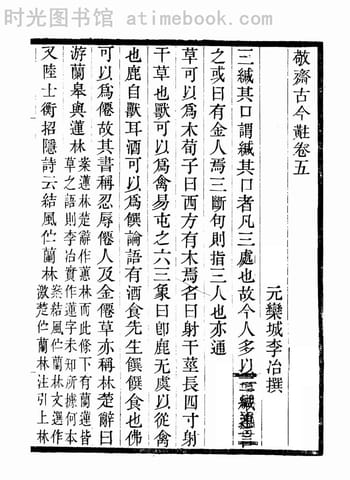 时光图书馆 - atimebook.com
敬齋古今黈卷五
元欒城李治撰
三緘其口謂緘其口者凡三處也故今人多以三緘連言
之或曰有金人焉三斷句則指三人也亦通
草可以爲木荀子曰西方有木焉名曰射干莖長四寸射
干草也獸可以爲禽易屯之六三象曰卽鹿无虞以從禽
也鹿自獸耳酒可以爲饌論語有酒食先生饌饌食也佛
可以爲僊故其書稱忍辱僊人及金僊草亦稱林楚辭曰
游蘭皋與蓮林
案蓮林楚辭作蕙林而此條下有蘭蓮皆
草之語則李治實作蓮字未知所據何本
又陸士衡招隱詩云結風伫蘭林
案結風伫蘭林文選作
激楚伫蘭林注引上林